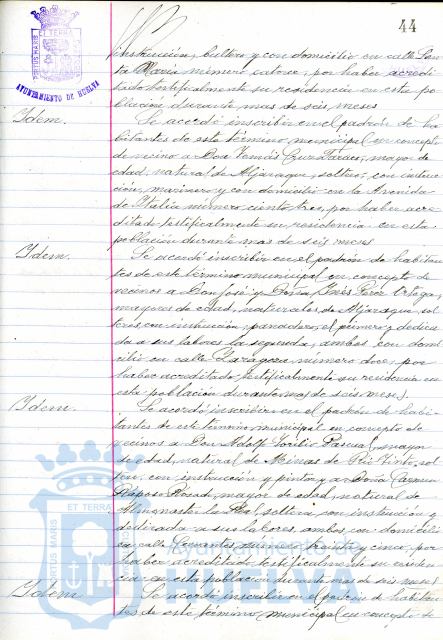 44
AYUNTAMIENTO DE HUELVA
instrucción, bultero y con domicilio en calle San-
ta María número catorce, por haber acredi-
tado testificalmente su residencia en esta po-
blación durante mas de seis meses
Idem.
Se acordó inscribir en el padrón de ha-
bitantes de este término municipal en concepto
de vecino a Don Tomás Cruz mayor de
edad, natural de Aljaraque, soltero, con instruc-
ción, marinero y con domicilio en la Avenida
de Italia número ciento tres, por haber acre-
ditado testificalmente su residencia en esta
población durante mas de seis meses
Idem.
Se acordó inscribir en el padrón de habitan-
tes de este término municipal en concepto de
vecinos a Don José y Doña Inés Pérez Ortega,
mayores de edad, naturales de Aljaraque, sol-
teros, con instrucción, panadero, el primero y dedica-
da a sus labores la segunda, ambos con domi-
cilio en calle Zaragoza número doce, por
haber acreditado testificalmente su residencia en
esta población durante mas de seis meses
Idem.
Se acordó inscribir en el padrón de habi-
tantes de este término municipal en concepto de
vecinos a Don Adolf Toribio Pascual, mayor
de edad, natural de Minas de Rio Tinto, sol-
tero, con instrucción y pintor y a Doña Carmen
Raposo mayor de edad, natural de
Almonaster la soltera, con instrucción y
dedicada a sus labores, ambos con domicilio
en calle Cervantes número treinta y cinco, por
haber acreditado testificalmente su residen-
cia en esta población durante mas de seis meses
Idem.
Se acordó inscribir en el padrón de habitan-
tes de este término municipal en concepto de
PORTUS MARIS ET TERRAE
Ayuntamiento de
HUELVA